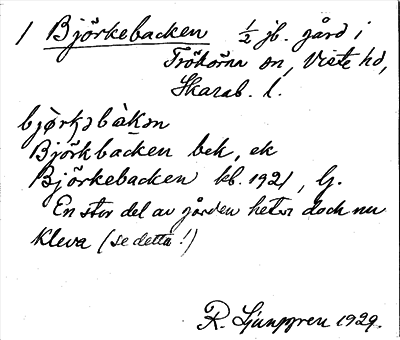 1 Björkebacken 1/2 jb. gård i
Trökörna sn, Viste hd,
Skarab. l.
bjø̀rkəbàkən
Björkbacken bek, ek
Björkebacken kb. 1921, lj.
En stor del av gården heter dock nu
Kleva (se detta!)
R. Ljunggren 1929.